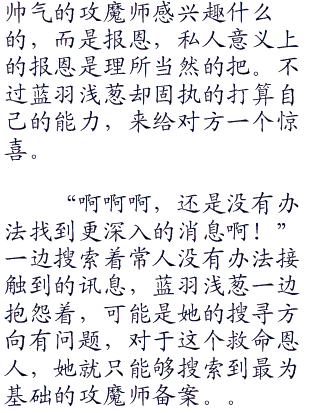 帅气的攻魔师感兴趣什么
的，而是报恩，私人意义上
的报恩是理所当然的把。不
过蓝羽浅葱却固执的打算自
己的能力，来给对方一个惊
喜。
“啊啊啊，还是没有办
法找到更深入的消息啊！”
一边搜索着常人没有办法接
触到的讯息，蓝羽浅葱一边
抱怨着，可能是她的搜寻方
向有问题，对于这个救命恩
人，她就只能够搜索到最为
基础的攻魔师备案。。